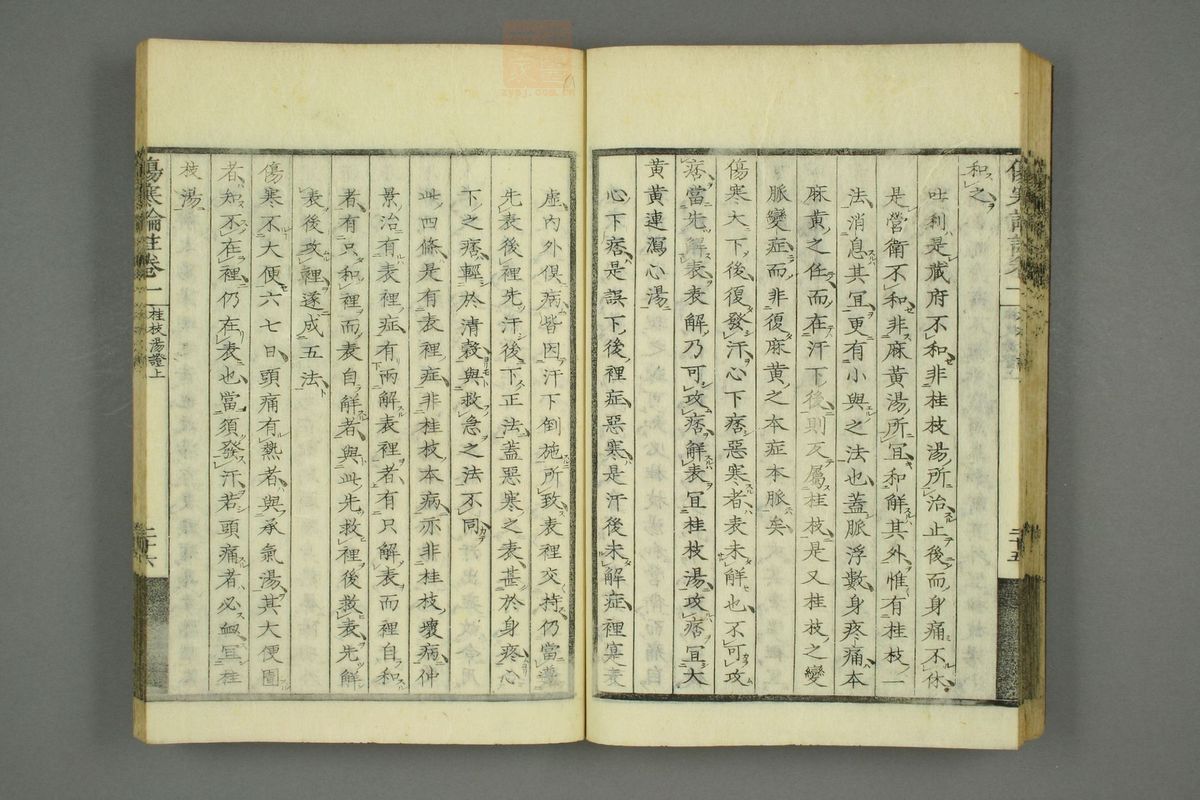 和之
吐利是臓府不和非桂枝湯所治止後而身痛不休
是營衛不和非麻黄湯所宜和解其外惟有桂枝一
法消息其宜更有小與之法也蓋脈浮數身疼痛本
麻黄之任而在汗下後則反屬桂枝是又桂枝之變
脈變症而非復麻黄之本症本脈矣
傷寒大下後復發汗心下痞惡寒者表未解也不可攻
痞當先解表表解乃可攻痞解表宜桂枝湯攻痞宜大
黄黄連瀉心湯
心下痞是誤下後裡症惡寒是汗後未解症裡寔表
虚内外俱病皆因汗下倒施所致表裡交持仍當遵
先表後裡先汗後下正法蓋惡寒之表甚於身疼心
下之痞輕於清穀與救急之法不同
此四條是有表裡症非桂枝本病亦非桂枝壞病仲
景治有表裡症有兩解表裡者有只解表而裡自和
者有只和裡而表自解者與此先救裡後救表先解
表後攻裡遂成五法
傷寒不大便六七日頭痛有熱者與承氣湯其大便圊
者知不在裡仍在表也當須發汗若頭痛者必衂宜桂
枝湯
傷寒論註卷一 桂枝湯證上 二十六
zysj.com.cn